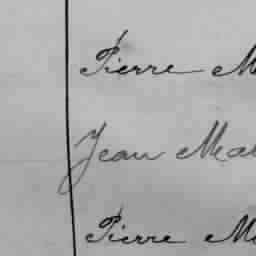 Pierre M
Jean Ma
Pierre M